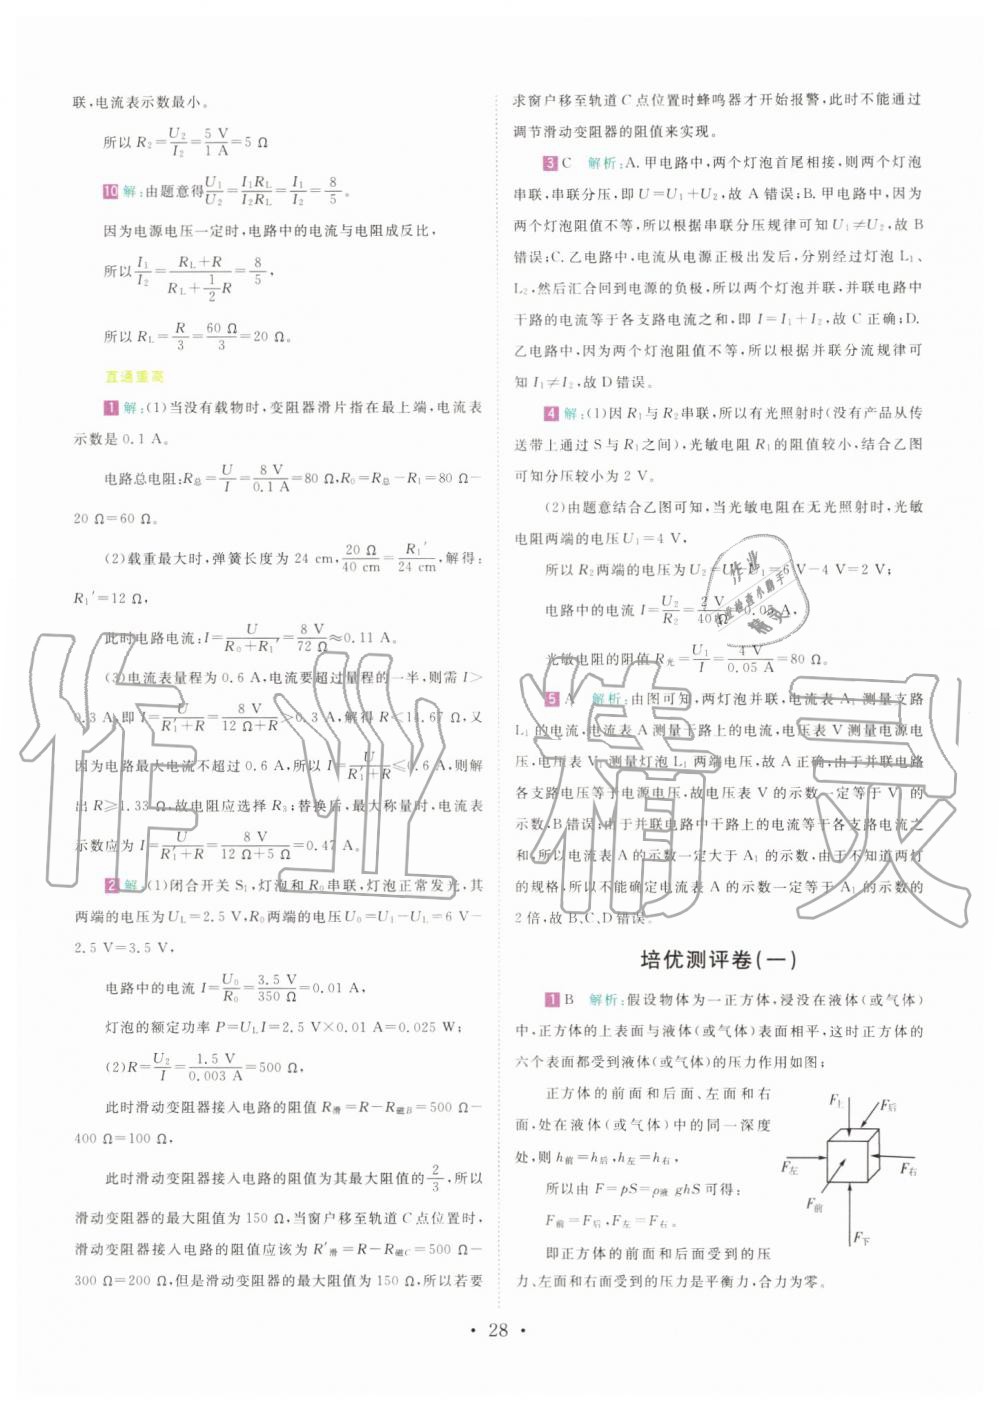 联,电流表示数最小。
所以 R₂=U₂/I₂=5 V/1 A=5 Ω
10 解:由题意得U₁/U₂=I₁R_L/I₂R_L=I₁/I₂=8/5。
因为电源电压一定时,电路中的电流与电阻成反比,
所以I₁/I₂=(R_L+R)/(R_L+1/2R)=8/5,
所以 R_L=R/3=60 Ω/3=20 Ω。
直通重高
1 解:(1)当没有载物时,变阻器滑片指在最上端,电流表
示数是 0.1 A。
电路总电阻:R总=U/I=8 V/0.1 A=80 Ω,R₀=R总-R₁=80 Ω-
20 Ω=60 Ω。
(2)载重最大时,弹簧长度为 24 cm,20 Ω/40 cm=R₁′/24 cm,解得:
R₁′=12 Ω,
此时电路电流:I=U/(R₀+R₁′)=8 V/72 Ω≈0.11 A。
(3)电流表量程为 0.6 A,电流要超过量程的一半,则需 I>
0.3 A,即 I=U/(R₁′+R)=8 V/(12 Ω+R)>0.3 A,解得 R<14.67 Ω,又
因为电路最大电流不超过 0.6 A,所以 I=U/(R₁′+R)≤0.6 A,则解
出 R≥1.33 Ω,故电阻应选择 R₃;替换后,最大称量时,电流表
示数应为 I=U/(R₁′+R)=8 V/(12 Ω+5 Ω)=0.47 A。
2 解:(1)闭合开关 S₁,灯泡和 R₀串联,灯泡正常发光,其
两端的电压为 U_L=2.5 V,R₀两端的电压 U₀=U₁-U_L=6 V-
2.5 V=3.5 V,
电路中的电流 I=U₀/R₀=3.5 V/350 Ω=0.01 A,
灯泡的额定功率 P=U_LI=2.5 V×0.01 A=0.025 W;
(2)R=U₂/I=1.5 V/0.003 A=500 Ω,
此时滑动变阻器接入电路的阻值 R滑=R-R磁B=500 Ω-
400 Ω=100 Ω,
此时滑动变阻器接入电路的阻值为其最大阻值的2/3,所以
滑动变阻器的最大阻值为 150 Ω,当窗户移至轨道 C 点位置时,
滑动变阻器接入电路的阻值应该为 R′滑=R-R磁C=500 Ω-
300 Ω=200 Ω,但是滑动变阻器的最大阻值为 150 Ω,所以若要
求窗户移至轨道 C 点位置时蜂鸣器才开始报警,此时不能通过
调节滑动变阻器的阻值来实现。
3 C 解析:A.甲电路中,两个灯泡首尾相接,则两个灯泡
串联,串联分压,即 U=U₁+U₂,故 A 错误;B.甲电路中,因为
两个灯泡阻值不等,所以根据串联分压规律可知 U₁≠U₂,故 B
错误;C.乙电路中,电流从电源正极出发后,分别经过灯泡 L₁、
L₂,然后汇合回到电源的负极,所以两个灯泡并联,并联电路中
干路的电流等于各支路电流之和,即 I=I₁+I₂,故 C 正确;D.
乙电路中,因为两个灯泡阻值不等,所以根据并联分流规律可
知 I₁≠I₂,故 D 错误。
4 解:(1)因 R₁与 R₂串联,所以有光照射时(没有产品从传
送带上通过 S 与 R₁之间),光敏电阻 R₁的阻值较小,结合乙图
可知分压较小为 2 V。
(2)由题意结合乙图可知,当光敏电阻在无光照射时,光敏
电阻两端的电压 U₁=4 V,
所以 R₂两端的电压为 U₂=U-U₁=6 V-4 V=2 V;
电路中的电流 I=U₂/R₂=2 V/40 Ω=0.05 A,
光敏电阻的阻值 R光=U₁/I=4 V/0.05 A=80 Ω。
5 A 解析:由图可知,两灯泡并联,电流表 A₁测量支路
L₁的电流,电流表 A 测量干路上的电流,电压表 V 测量电源电
压,电压表 V₁测量灯泡 L₁两端电压,故 A 正确;由于并联电路
各支路电压等于电源电压,故电压表 V 的示数一定等于 V₁的
示数,B 错误;由于并联电路中干路上的电流等于各支路电流之
和,所以电流表 A 的示数一定大于 A₁的示数,由于不知道两灯
的规格,所以不能确定电流表 A 的示数一定等于 A₁的示数的
2 倍,故 B、C、D 错误。
培优测评卷(一)
1 B 解析:假设物体为一正方体,浸没在液体(或气体)
中,正方体的上表面与液体(或气体)表面相平,这时正方体的
六个表面都受到液体(或气体)的压力作用如图;
正方体的前面和后面、左面和右
面,处在液体(或气体)中的同一深度
处,则 h前=h后,h左=h右,
所以由 F=pS=ρ液 ghS 可得:
F前=F后,F左=F右。
即正方体的前面和后面受到的压
力、左面和右面受到的压力是平衡力,合力为零。
F上
F后
F左
F右
F前
F下
• 28 •
作业精灵
作业
检查小助手
精灵